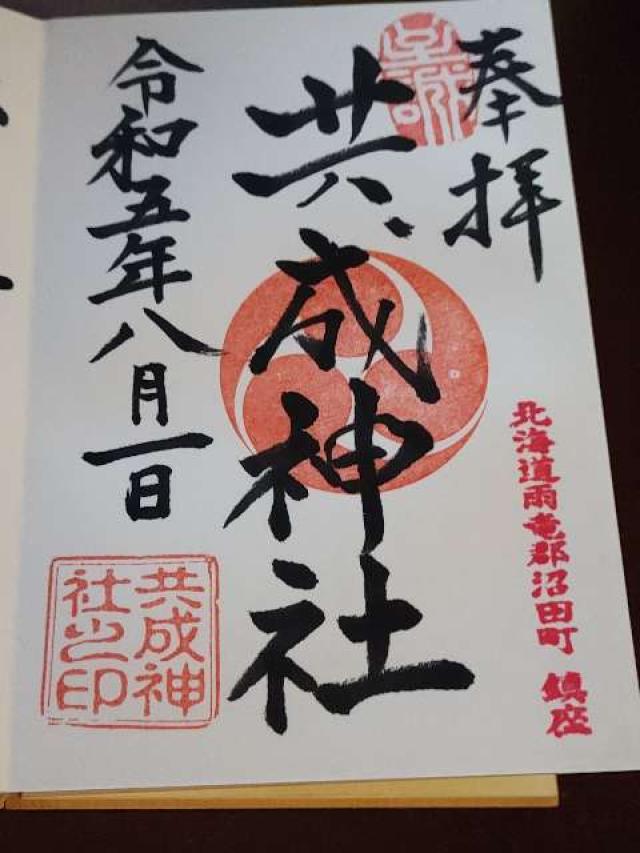 奉拝
北海道雨竜郡沼田町 鎮座
共成神社
令和五年八月一日
共成神
社之印